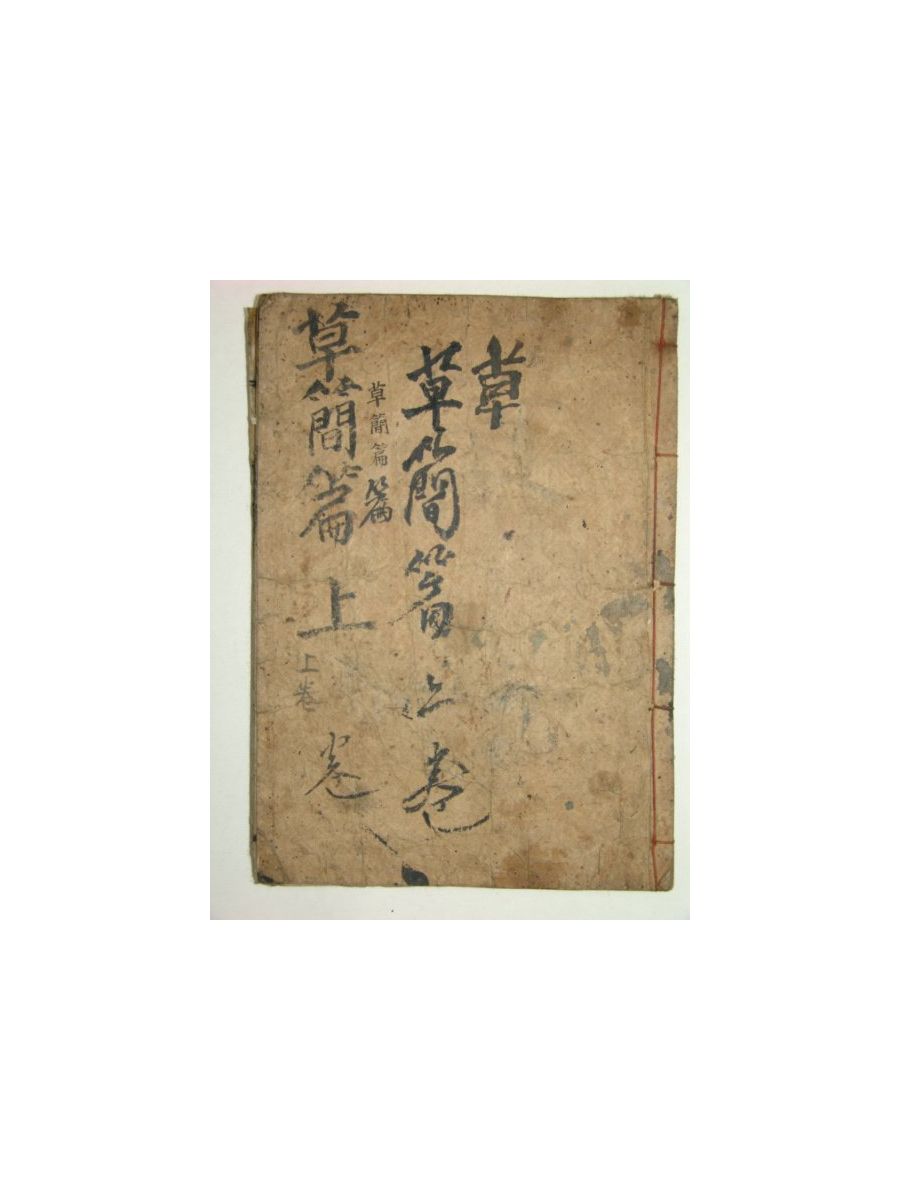 草
草簡篇上卷
草簡篇篇
草簡篇上
上卷
卷